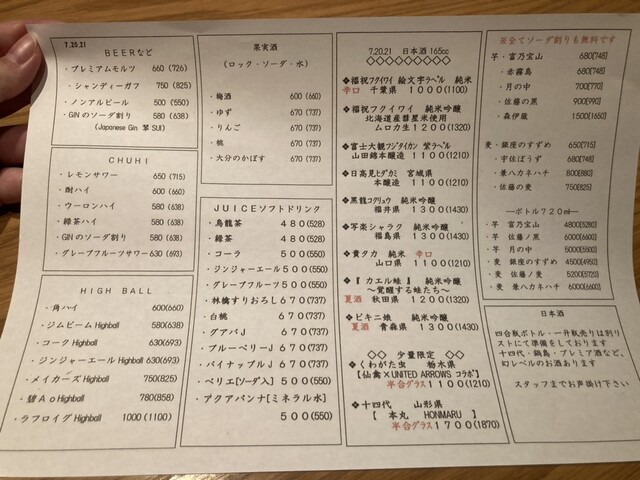 7.20.21
BEERなど
・プレミアムモルツ 660 (726)
・シャンディーガフ 750 (825)
・ノンアルビール 500 (550)
・GINのソーダ割り 580 (638)
(Japanese Gin 翠 SUI)
CHUHI
・レモンサワー 650 (715)
・酎ハイ 600 (660)
・ウーロンハイ 580 (638)
・緑茶ハイ 580 (638)
・GINのソーダ割り 580 (638)
・グレープフルーツサワー630 (693)
HIGH BALL
・角ハイ 600(660)
・ジムビームHighball 580(638)
・コークHighball 630(693)
・ジンジャーエールHighball 630(693)
・メイカーズHighball 750(825)
・碧Ao Highball 780(858)
・ラフロイグHighball 1000 (1100)
果実酒
(ロック・ソーダ・水)
・梅酒 600 (660)
・ゆず 670 (737)
・りんご 670 (737)
・桃 670 (737)
・大分のかぼす 670 (737)
JUICEソフトドリンク
・烏龍茶 480(528)
・緑茶 480(528)
・コーラ 500(550)
・ジンジャーエール500(550)
・グレープフルーツ500(550)
・林檎すりおろし670(737)
・白桃 670(737)
・グアバJ 670(737)
・ブルーベリーJ 670(737)
・パイナップルJ 670(737)
・ペリエ[ソーダ入]500(550)
・アクアパンナ[ミネラル水]
500(550)
7.20.21 日本酒 165cc
◇◇◇◇◇◇◇◇
❖福祝フクイワイ 絵文字ラベル 純米
辛口 千葉県 1000(1100)
❖福祝フクイワイ 純米吟醸
北海道産彗星米使用
ムロカ生1200(1320)
❖富士大観フジタイカン 紫ラベル
山田錦本醸造 1100(1210)
❖日高見ヒダカミ 宮城県
本醸造 1100(1210)
❖黒龍コクリュウ 純米吟醸
福井県 1300(1430)
❖写楽シャラク 純米吟醸
福島県 1300(1430)
❖貴タカ 純米 辛口
山口県 1100(1210)
❖『カエル蛙』 純米吟醸
～覚醒する蛙たち～
夏酒 秋田県 1200(1320)
❖ビキニ娘 純米吟醸
夏酒 青森県 1300(1430)
◇◇ 少量限定 ◇◇
❖くわがた虫 栃木県
【仙禽×UNITED ARROWS コラボ】
半合グラス1100(1210)
❖十四代 山形県
【 本丸 HONMARU 】
半合グラス1700(1870)
※全てソーダ割りも無料です
芋・富乃宝山 680[748]
・赤霧島 680[748]
・月の中 700[770]
・佐藤の黒 900[990]
・森伊蔵 1500[1650]
麦・銀座のすずめ 650[715]
・宇佐ぼうず 680[748]
・兼八カネハチ 800[880]
・佐藤の麦 750[825]
―ボトル720ml―
・芋 富乃宝山 4800[5280]
・芋 佐藤ノ黒 6000[6600]
・芋 月の中 5000[5500]
・麦 銀座のすずめ 4500[4950]
・麦 佐藤ノ麦 5200[5720]
・麦 兼八カネハチ 6000[6600]
日本酒
四合瓶ボトル・一升瓶売りは別リ
ストにて準備をしております
十四代・鍋島・プレミア酒など、
幻レベルのお酒あります
スタッフまでお声掛け下さい